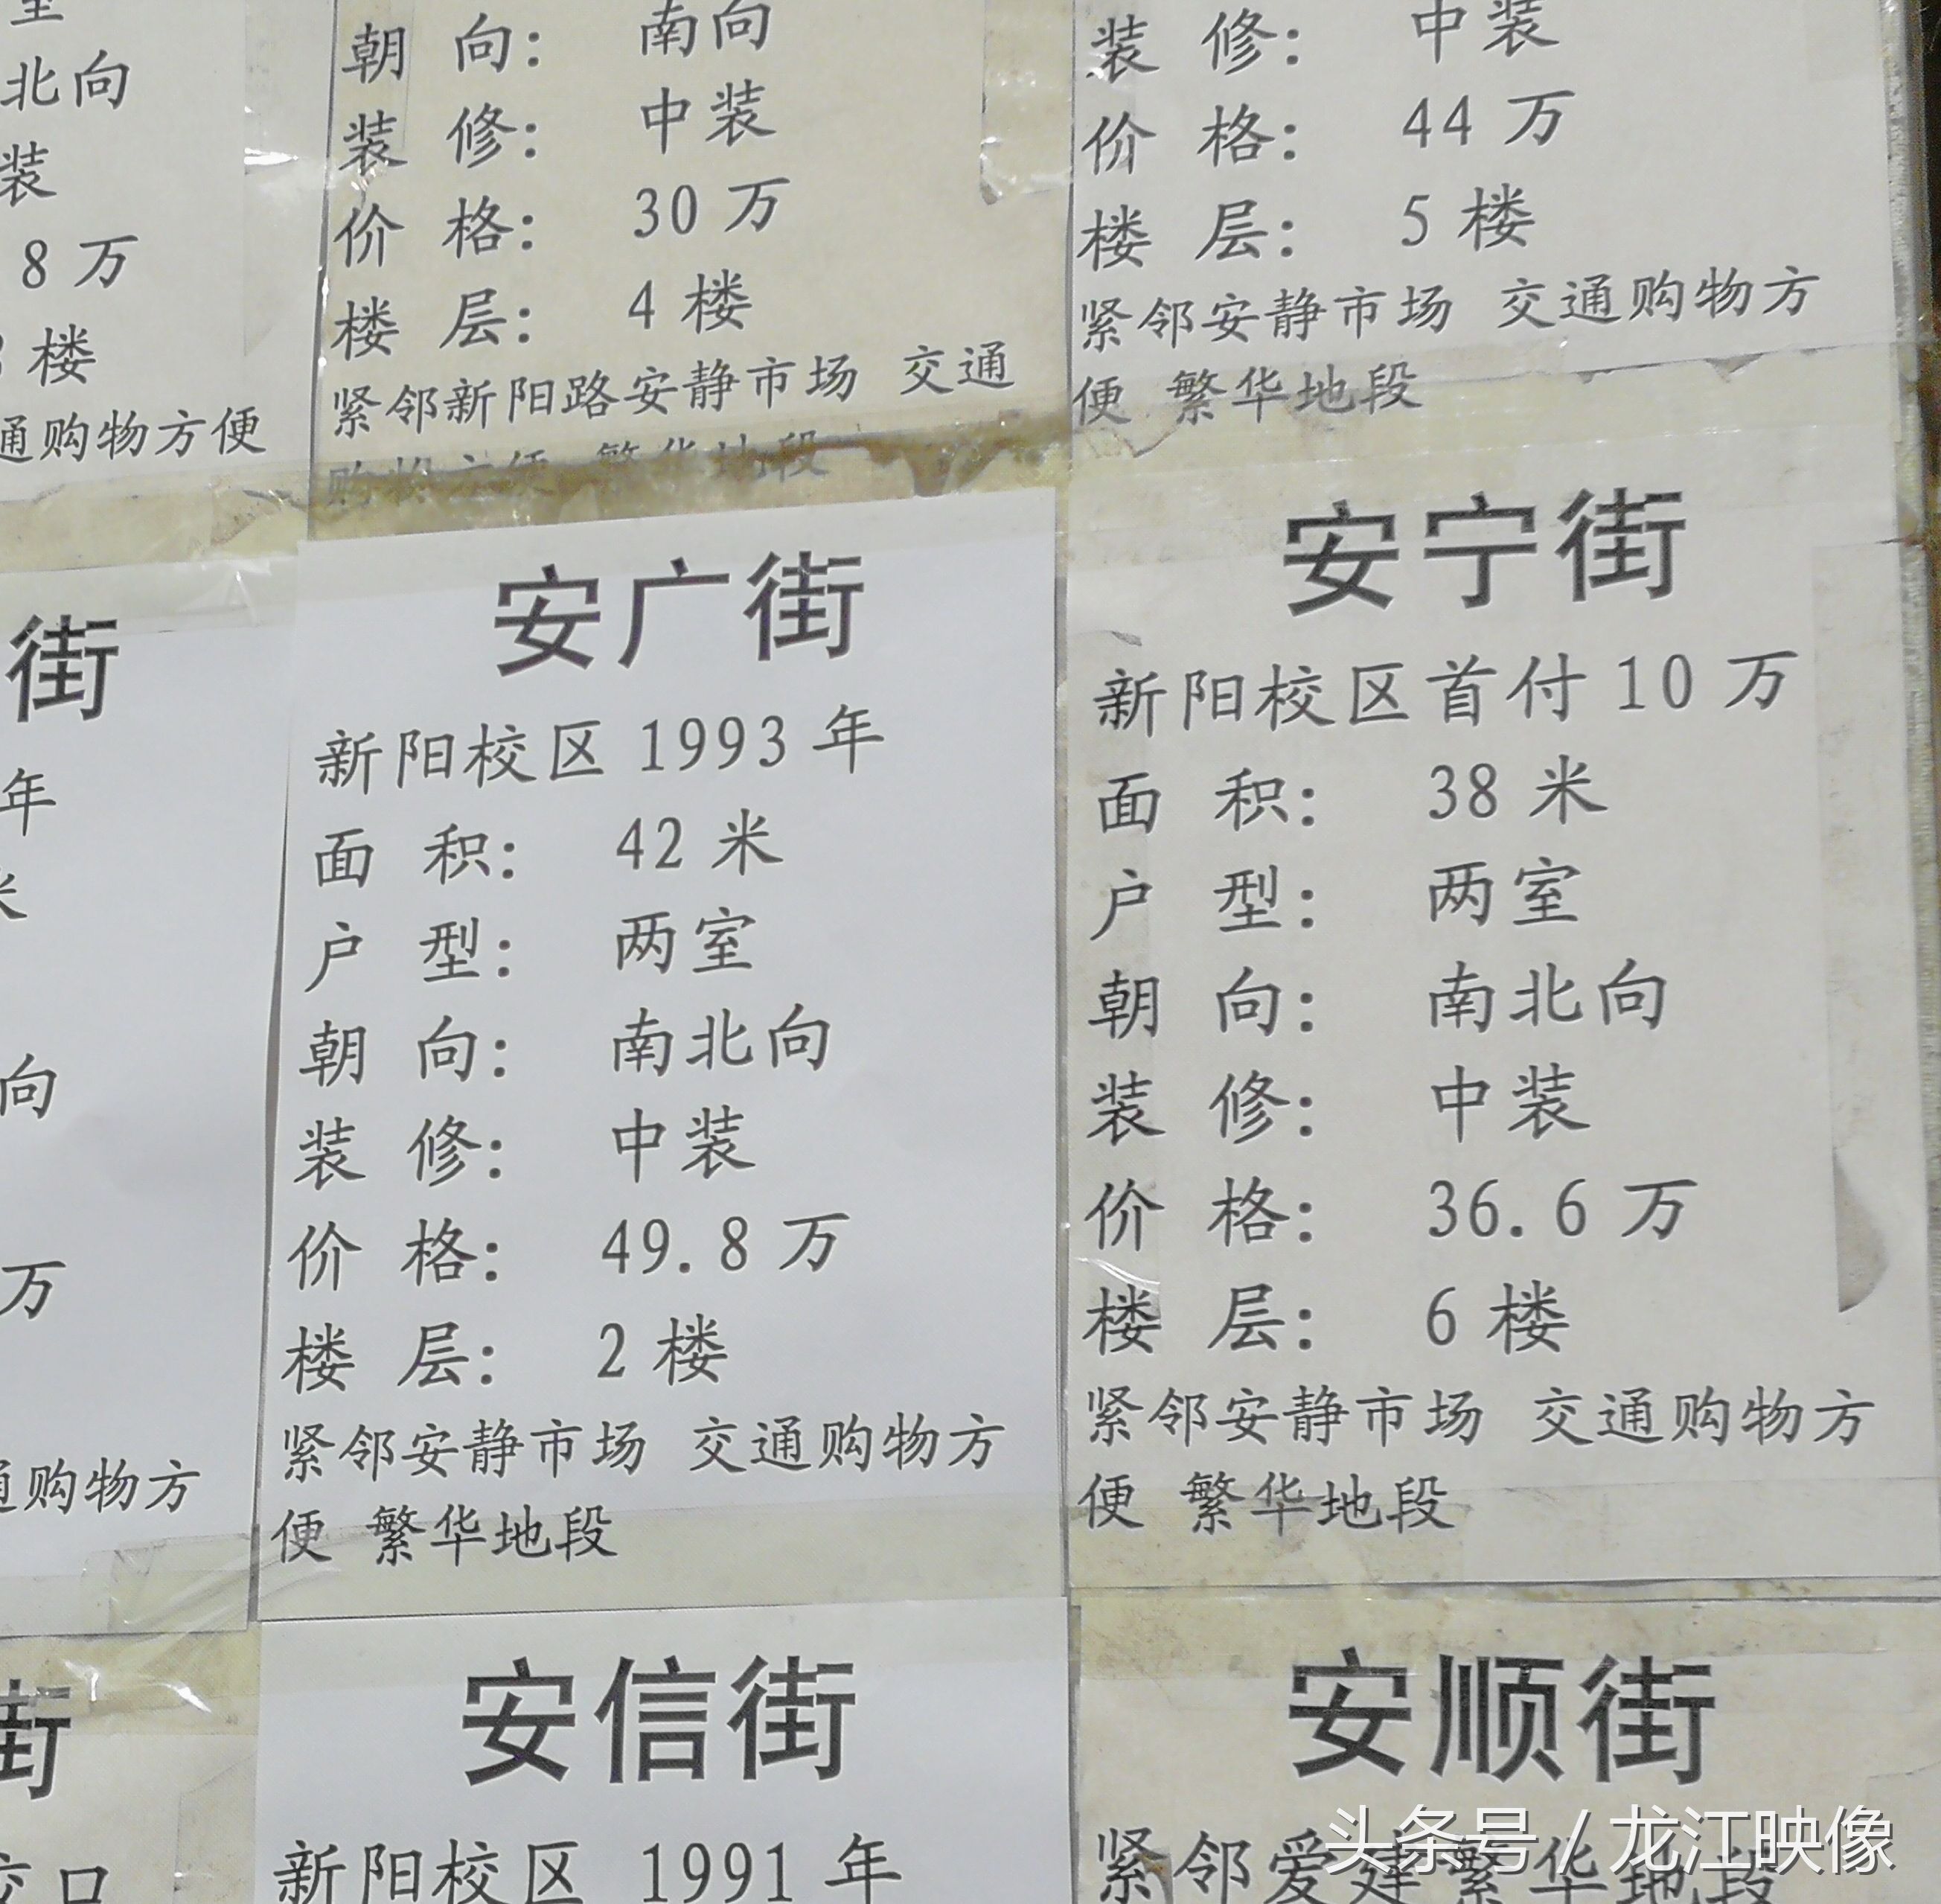 北向
装
8 万
楼
通购物方便
朝 向： 南向
装 修： 中装
价 格： 30 万
楼 层： 4 楼
紧邻新阳路安静市场 交通
购物方便 繁华地段
装 修： 中装
价 格： 44 万
楼 层： 5 楼
紧邻安静市场 交通购物方
便 繁华地段
街
年
米
向
万
通购物方
安广街
新阳校区 1993 年
面 积： 42 米
户 型： 两室
朝 向： 南北向
装 修： 中装
价 格： 49.8 万
楼 层： 2 楼
紧邻安静市场 交通购物方
便 繁华地段
安宁街
新阳校区首付 10 万
面 积： 38 米
户 型： 两室
朝 向： 南北向
装 修： 中装
价 格： 36.6 万
楼 层： 6 楼
紧邻安静市场 交通购物方
便 繁华地段
街
安信街
新阳校区 1991 年
安顺街
紧邻爱建繁华地段
头条号 / 龙江映像